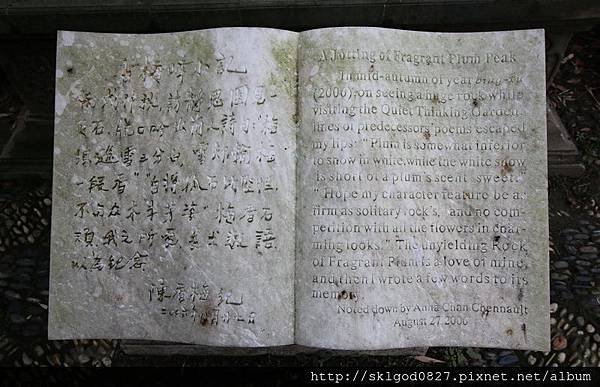 小記
訪靜思園見一
巨石脱口吟出前人詩句梅
須遜雪三分白 雪却輸梅
一段香"
梅香石
頑我之所愛
以為紀念
陳香梅 記
A Jotting of Fragrant Plum Peak
In mid-autumn of year bing-xu
(2006), on seeing a huge rock while
visiting the Quiet Thinking Garden,
lines of predecessors' poems escaped
my lips: "Plum is somewhat inferior
to snow in white, while the white snow
is short of a plum's scent sweet."
"Hope my character feature be as
firm as solitary rock's, and no com-
petition with all the flowers in char-
ming looks." The unyielding Rock
of Fragrant Plum is a love of mine,
and then I wrote a few words to its
memory.
Noted down by Anna Chan Chennault
August 27, 2006
http://sklgod0827.pixnet.net/album